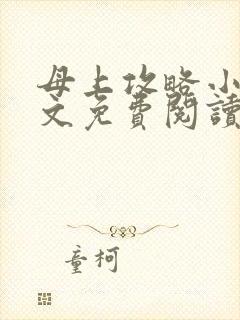 母上攻略小
文免費閱讀
童柯